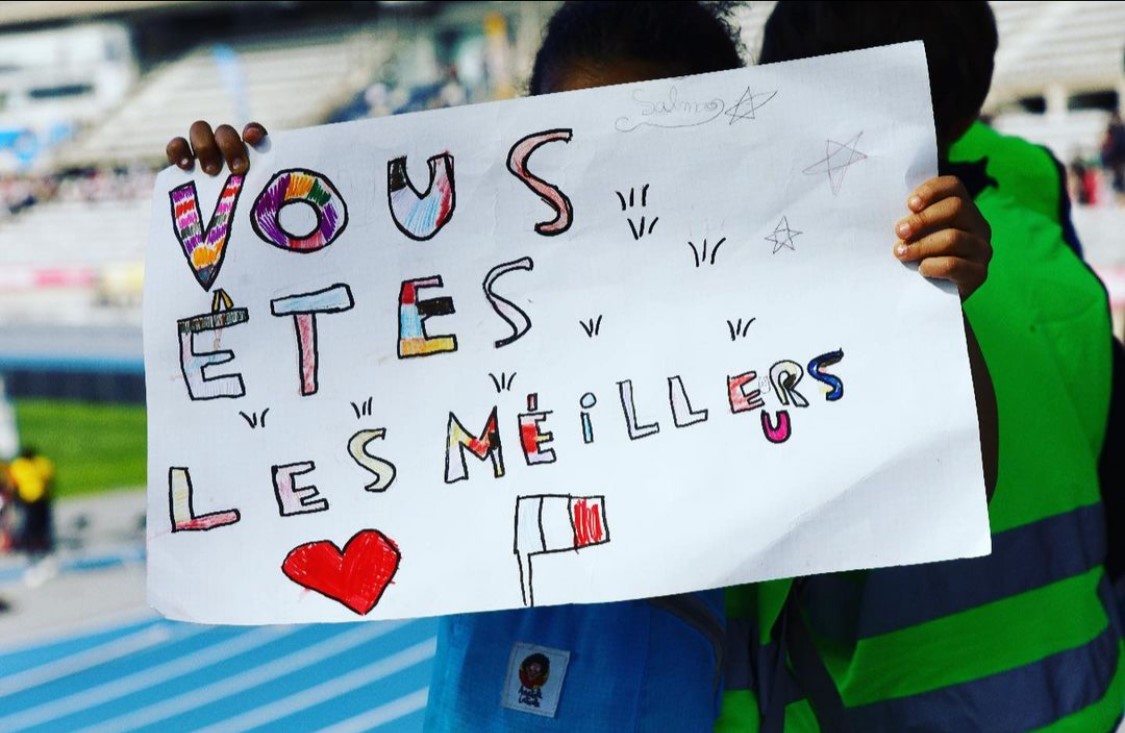 VOUS
ÊTES
LES MÉILLERS
U